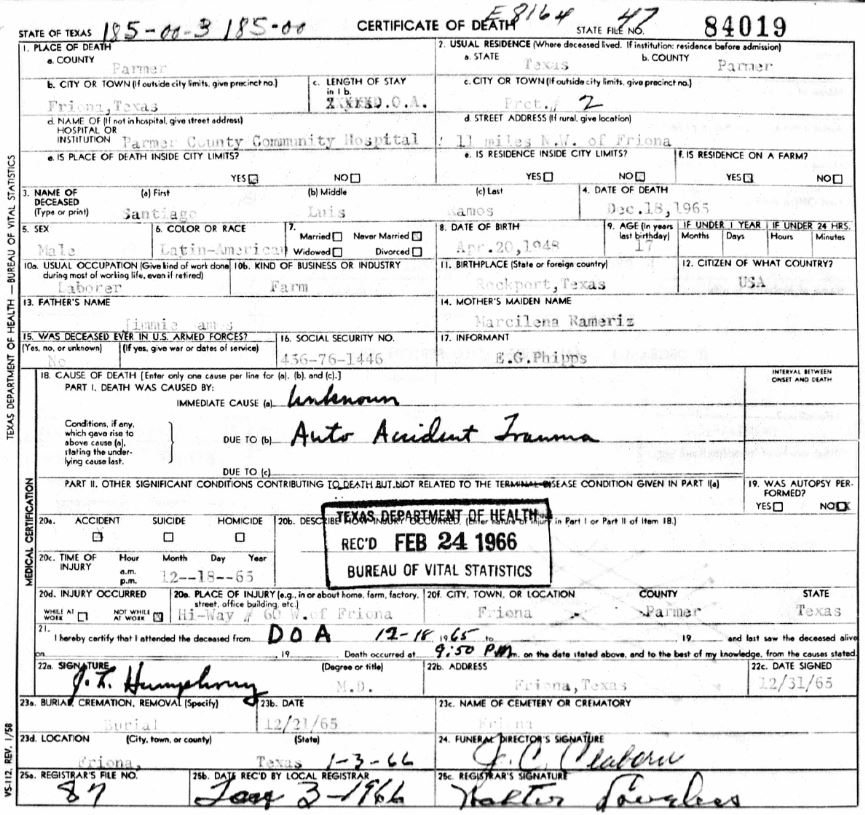 STATE OF TEXAS 185-00-3 185-00 CERTIFICATE OF DEATH E8164 STATE FILE NO. 47 84019
1. PLACE OF DEATH
a. COUNTY
Parmer
2. USUAL RESIDENCE (Where deceased lived. If institution: residence before admission)
a. STATE b. COUNTY
Texas Parmer
b. CITY OR TOWN (If outside city limits, give precinct no.)
Friona,Texas
c. LENGTH OF STAY
in 1 b.
D.O.A.
c. CITY OR TOWN (If outside city limits, give precinct no.)
Prct.# 2
d. NAME OF (If not in hospital, give street address)
HOSPITAL OR
INSTITUTION Parmer County Community Hospital
d. STREET ADDRESS (If rural, give location)
11 miles N.W. of Friona
e. IS PLACE OF DEATH INSIDE CITY LIMITS?
YES NO
e. IS RESIDENCE INSIDE CITY LIMITS?
YES NO
f. IS RESIDENCE ON A FARM?
YES NO
3. NAME OF
DECEASED
(Type or print)
(a) First (b) Middle (c) Last
Santiago Luis Ramos
4. DATE OF DEATH
Dec.18,1965
5. SEX
Male
6. COLOR OR RACE
Latin-American
7.
Married Never Married
Widowed Divorced
8. DATE OF BIRTH
Apr.20,1948
9. AGE (In years
last birthday)
17
IF UNDER 1 YEAR IF UNDER 24 HRS.
Months Days Hours Minutes
10a. USUAL OCCUPATION (Give kind of work done
during most of working life, even if retired)
Laborer
10b. KIND OF BUSINESS OR INDUSTRY
Farm
11. BIRTHPLACE (State or foreign country)
Rockport,Texas
12. CITIZEN OF WHAT COUNTRY?
USA
13. FATHER'S NAME
Jimmie Ramos
14. MOTHER'S MAIDEN NAME
Marcilena Rameriz
15. WAS DECEASED EVER IN U.S. ARMED FORCES?
(Yes, no, or unknown) (If yes, give war or dates of service)
No
16. SOCIAL SECURITY NO.
456-76-1446
17. INFORMANT
E.G.Phipps
18. CAUSE OF DEATH [Enter only one cause per line for (a), (b), and (c).]
PART I. DEATH WAS CAUSED BY:
IMMEDIATE CAUSE (a) Unknown
INTERVAL BETWEEN
ONSET AND DEATH
Conditions, if any,
which gave rise to
above cause (a),
stating the under-
lying cause last.
DUE TO (b) Auto Accident Trauma
DUE TO (c)
PART II. OTHER SIGNIFICANT CONDITIONS CONTRIBUTING TO DEATH BUT NOT RELATED TO THE TERMINAL DISEASE CONDITION GIVEN IN PART I(a)
19. WAS AUTOPSY PER-
FORMED?
YES NO
20a. ACCIDENT SUICIDE HOMICIDE
20b. DESCRIBE HOW INJURY OCCURRED. (Enter nature of injury in Part I or Part II of Item 18.)
TEXAS DEPARTMENT OF HEALTH
REC'D FEB 24 1966
BUREAU OF VITAL STATISTICS
20c. TIME OF
INJURY
Hour Month Day Year
a.m.
p.m. 12--18--65
20d. INJURY OCCURRED
WHILE AT
WORK
NOT WHILE
AT WORK
20e. PLACE OF INJURY (e.g., in or about home, farm, factory,
street, office building, etc.)
Hi-Way # 60 W.of Friona
20f. CITY, TOWN, OR LOCATION COUNTY STATE
Friona Parmer Texas
21.
I hereby certify that I attended the deceased from DOA 12-18 1965 to 19 and last saw the deceased alive
on 19 Death occurred at 9:50 P.M m. on the date stated above, and to the best of my knowledge, from the causes stated.
22a. SIGNATURE (Degree or title)
J.L. Humphrey M.D.
22b. ADDRESS
Friona,Texas
22c. DATE SIGNED
12/31/65
23a. BURIAL, CREMATION, REMOVAL (Specify)
Burial
23b. DATE
12/21/65
23c. NAME OF CEMETERY OR CREMATORY
Friona
23d. LOCATION (City, town, or county) (State)
Friona, Texas 1-3-66
24. FUNERAL DIRECTOR'S SIGNATURE
J. C. Claborn
25a. REGISTRAR'S FILE NO.
87
25b. DATE REC'D BY LOCAL REGISTRAR
Jan 3-1966
25c. REGISTRAR'S SIGNATURE
Walter Loveless
TEXAS DEPARTMENT OF HEALTH—BUREAU OF VITAL STATISTICS
MEDICAL CERTIFICATION
VS-112, REV. 1/58